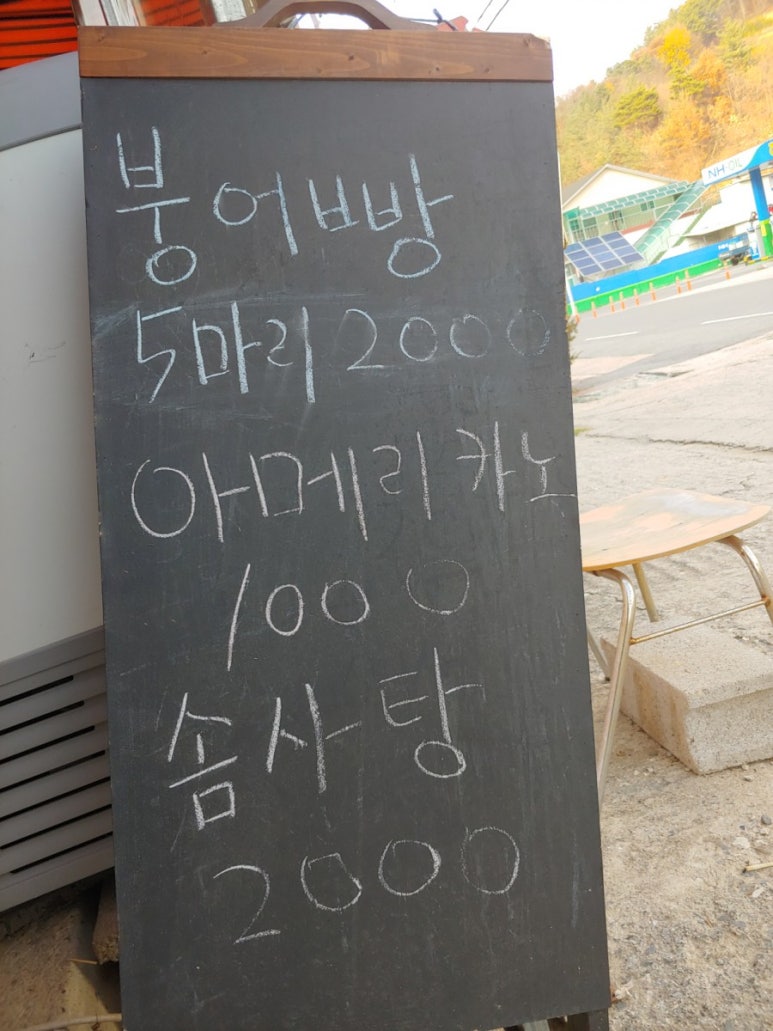 붕어빵
5마리 2000
아메리카노
1000
솜사탕
2000
NH-OIL